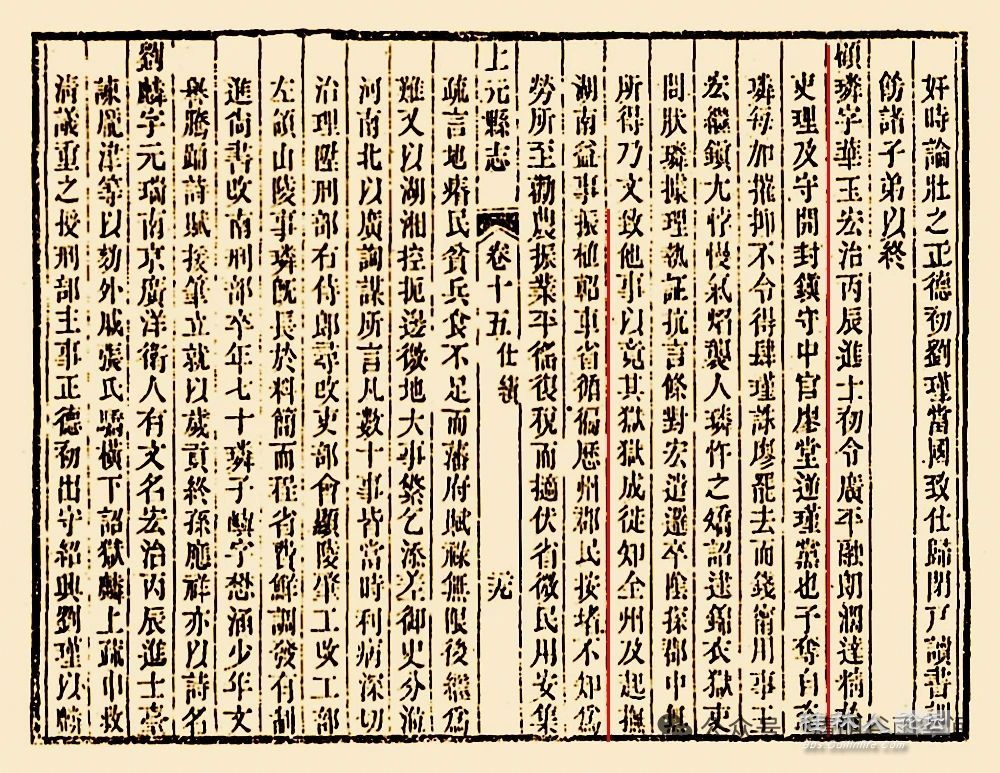 奸時論壯之正德初劉瑾當國致仕歸閉戶讀書訓
飭諸子弟以終
顧璘字華玉宏治丙辰進士初令廣平融朗濶達精於
吏理及守開封鎮守中官廖堂逆瑾黨也子奪自恣
璘每加摧抑不令得肆瑾誅廖罷去而錢甯用事王
宏繼鎮尤忮慢氣焰襲人璘忤之矯詔逮錦衣獄吏
問狀璘據理執証抗言條對宏逍遥卒陰探郡中無
所得乃文致他事以竟其獄獄成徙知全州及起撫
湖南益事振植軺車省循徧歷州郡民按堵不知為
勞所至勸農振業平徭復稅而擿伏省微民用安集
疏言地瘠民貧兵食不足而藩府賦祿無限後繼為
上元縣志 卷十五 仕績 
難又以湖湘控扼邊徼地大事繁乞添差御史分涖
河南北以廣詢謀所言凡數十事皆當時利病深切
治理陞刑部右侍郎尋改吏部會顯陵肇工改工部
左領山陵事璘既長於料簡而程省費鮮調發有制
進尚書改南刑部卒年七十璘子嶼字懋涵少年文
譽騰踔詩賦援筆立就以歲貢終孫應祥亦以詩名
劉麟字元瑞南京廣洋衛人有文名宏治丙辰進士臺
諫龐泮等以劾外戚張氏驕橫下詔獄麟上疏申救
清議重之授刑部主事正德初出守紹興劉瑾以嬌
公众号
桂林
bbs.Guilinlife.Com